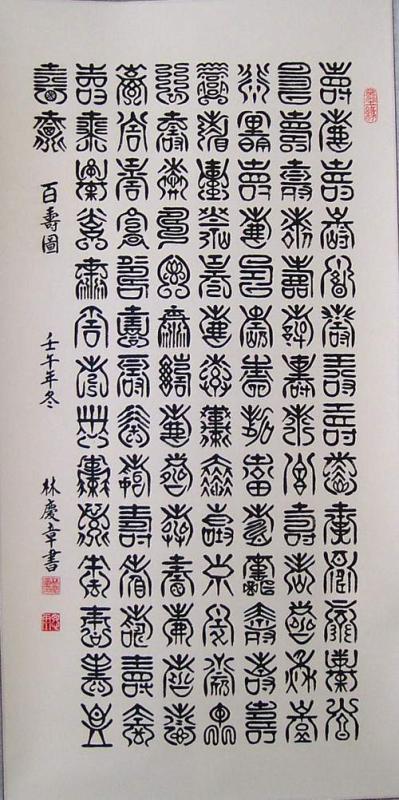 壽壽壽壽壽壽壽壽壽壽壽壽壽壽
壽壽壽壽壽壽壽壽壽壽壽壽壽壽
壽壽壽壽壽壽壽壽壽壽壽壽壽壽
壽壽壽壽壽壽壽壽壽壽壽壽壽壽
壽壽壽壽壽壽壽壽壽壽壽壽壽壽
壽壽壽壽壽壽壽壽壽壽壽壽壽壽
壽壽壽壽壽壽壽壽壽壽壽壽壽壽
壽壽 百壽圖 壬午年冬 林慶章書